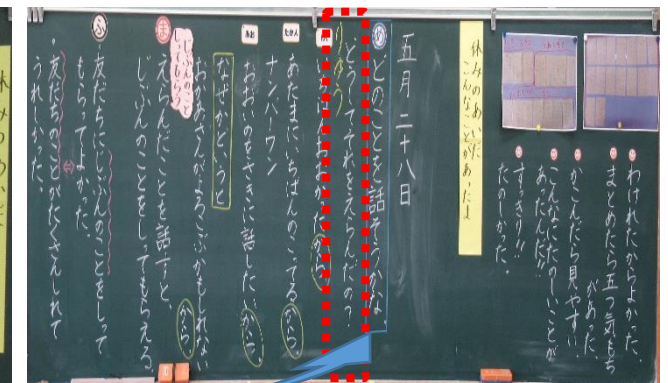 わけれたからよかった。
まとめたら五つ気もちがあった。
かこんだら見やすい
こんなにたのしいことがあったんだ!!
すっきり!!
たのしかった。
休みのあいだ
こんなことがあったよ
五月二十八日
め どのことを話そうかな
どうしてそれをえらんだの?
りゆう
いちばんおおかったから。
あたまにいちばんのこってるから。
ナンバーワン
おおいのをさきに話したいから。
なぜかというと
おかあさんがよろこぶかもしれないから。
じぶんのことしってもらう
ま えらんだことを話すと、
じぶんのことをしってもらえる。
ふ ・友だちにじぶんのことをしってもらってよかった。
・友だちのことがたくさんしれてうれしかった。